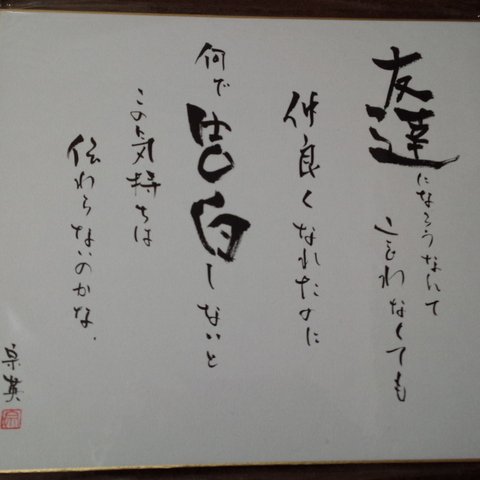 友達になろうなんて
言わなくても
仲良くなれたのに
何で告白しないと
この気持ちは
伝わらないのかな、